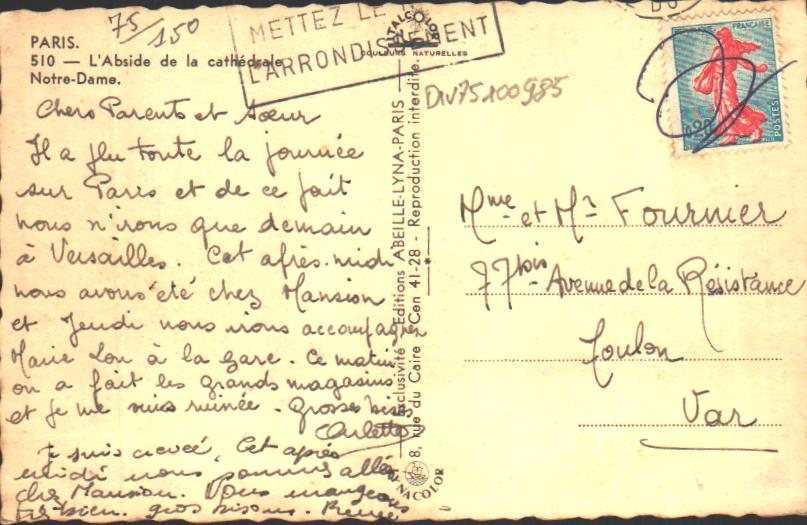 75/150
METTEZ LE
L'ARRONDISSEMENT
CATALCOLOR
COULEURS NATURELLES
PARIS.
510 — L'Abside de la cathédrale
Notre-Dame.
Div75100985
FRANÇAISE
POSTES
0,20
Chers Parents et soeur
Il a plu toute la journée
sur Paris et de ce fait
nous n'irons que demain
à Versailles. Cet après-midi
nous avons été chez Mansion
et Jeudi nous irons accompagner
Marie Lou à la gare. Ce matin
on a fait les grands magasins
et je me suis ruinée. Grosses bises
Arlette
Je suis crevée, Cet après
midi nous sommes allées
chez Mansion. Nous mangeons
très bien. gros bisous. Renée
Exclusivité Editions ABEILLE-LYNA-PARIS
8, rue du Caire - Cen 41-28 - Reproduction interdite.
LYNACOLOR
Mme et Mr Fournier
77bis Avenue de la Résistance
Toulon
Var